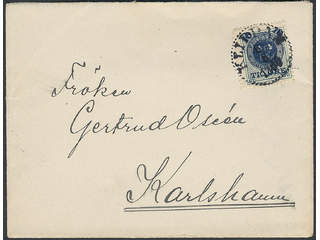 Fröken
Gertrud Oséen
Karlshamn